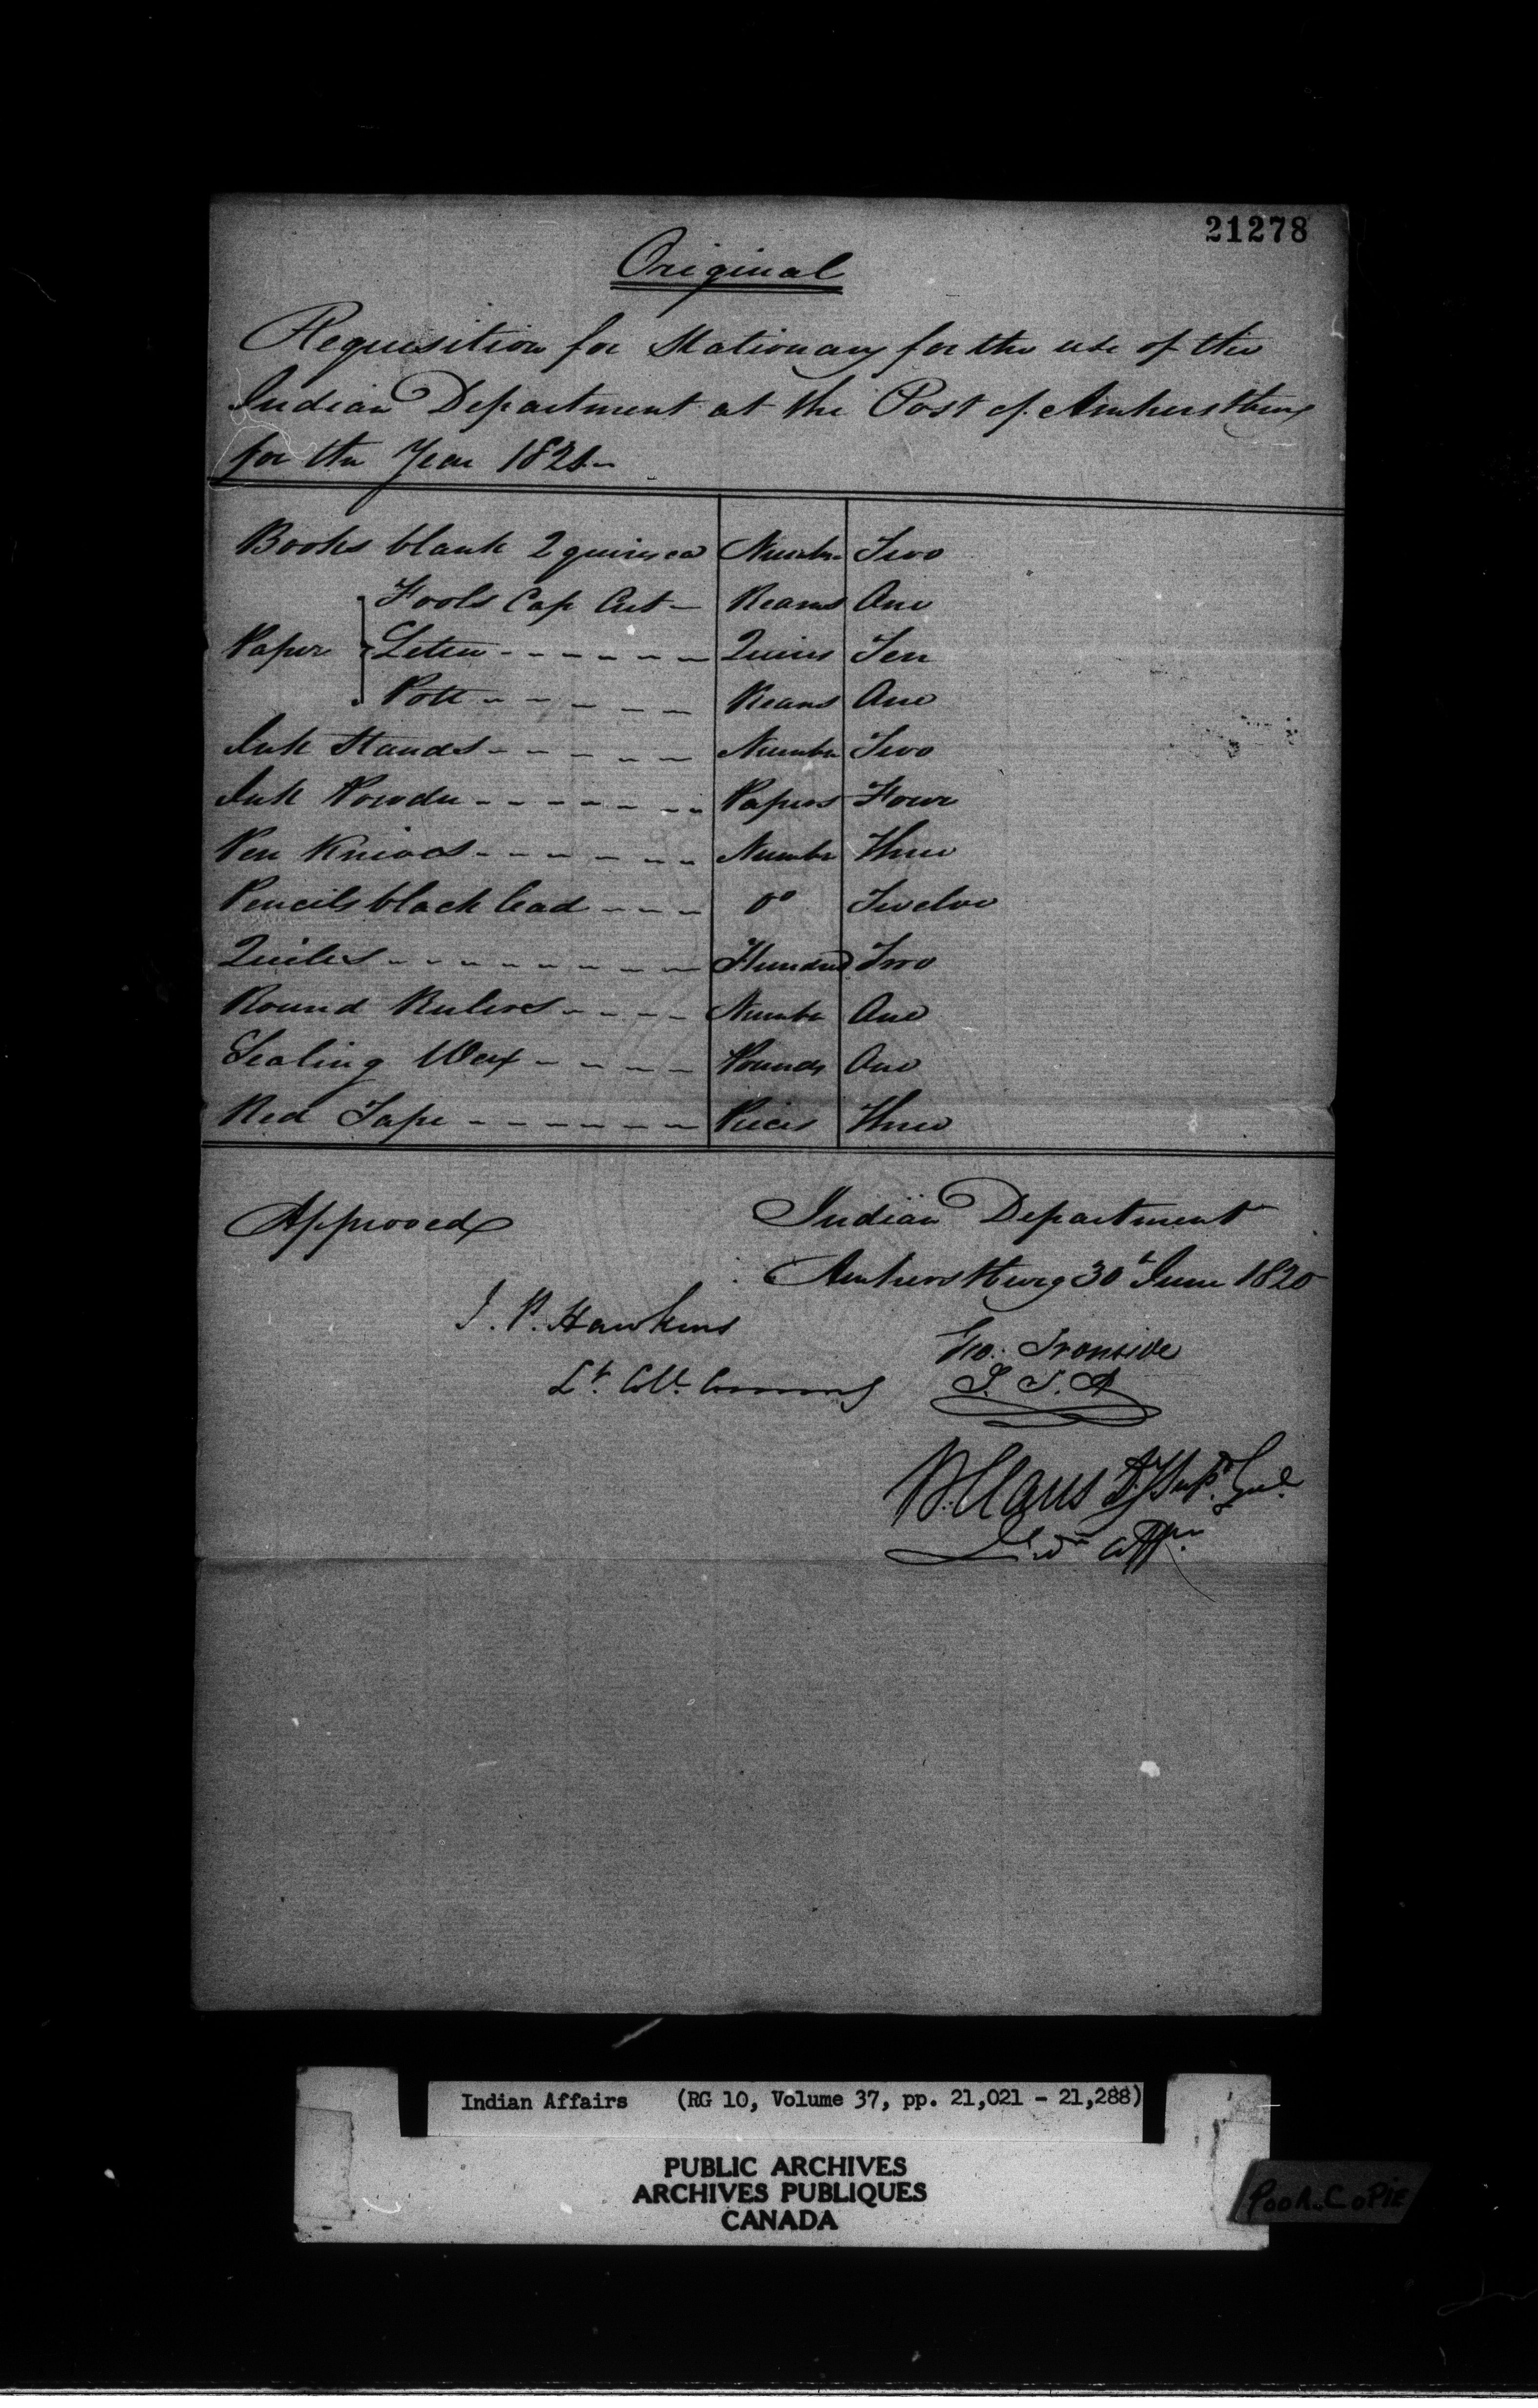 21278
Original
Requisition for Stationary for the use of the
Indian Department at the Post of Amherstburg
for the Year 1821
Books blank 2 quires ea Number Two
Fools Cap Cut Reams One
Paper Letter Quires Ten
Pott Reams One
Ink Stands Number Two
Ink Powder Papers Four
Pen Knives Number Three
Pencils black lead Do Twelve
Quills Hundred Two
Round Rulers Number One
Sealing Wax Pounds One
Red Tape Pieces Three
Approved
Indian Department
Amherstburg 30th June 1820
J. P. Hawkins
Lt. Col. Commg
Geo. Ironside
S. I. A
W. Claus D. Supt. Genl.
Indn Affrs
Indian Affairs (RG 10, Volume 37, pp. 21,021 - 21,288)
PUBLIC ARCHIVES
ARCHIVES PUBLIQUES
CANADA
POOR COPIE